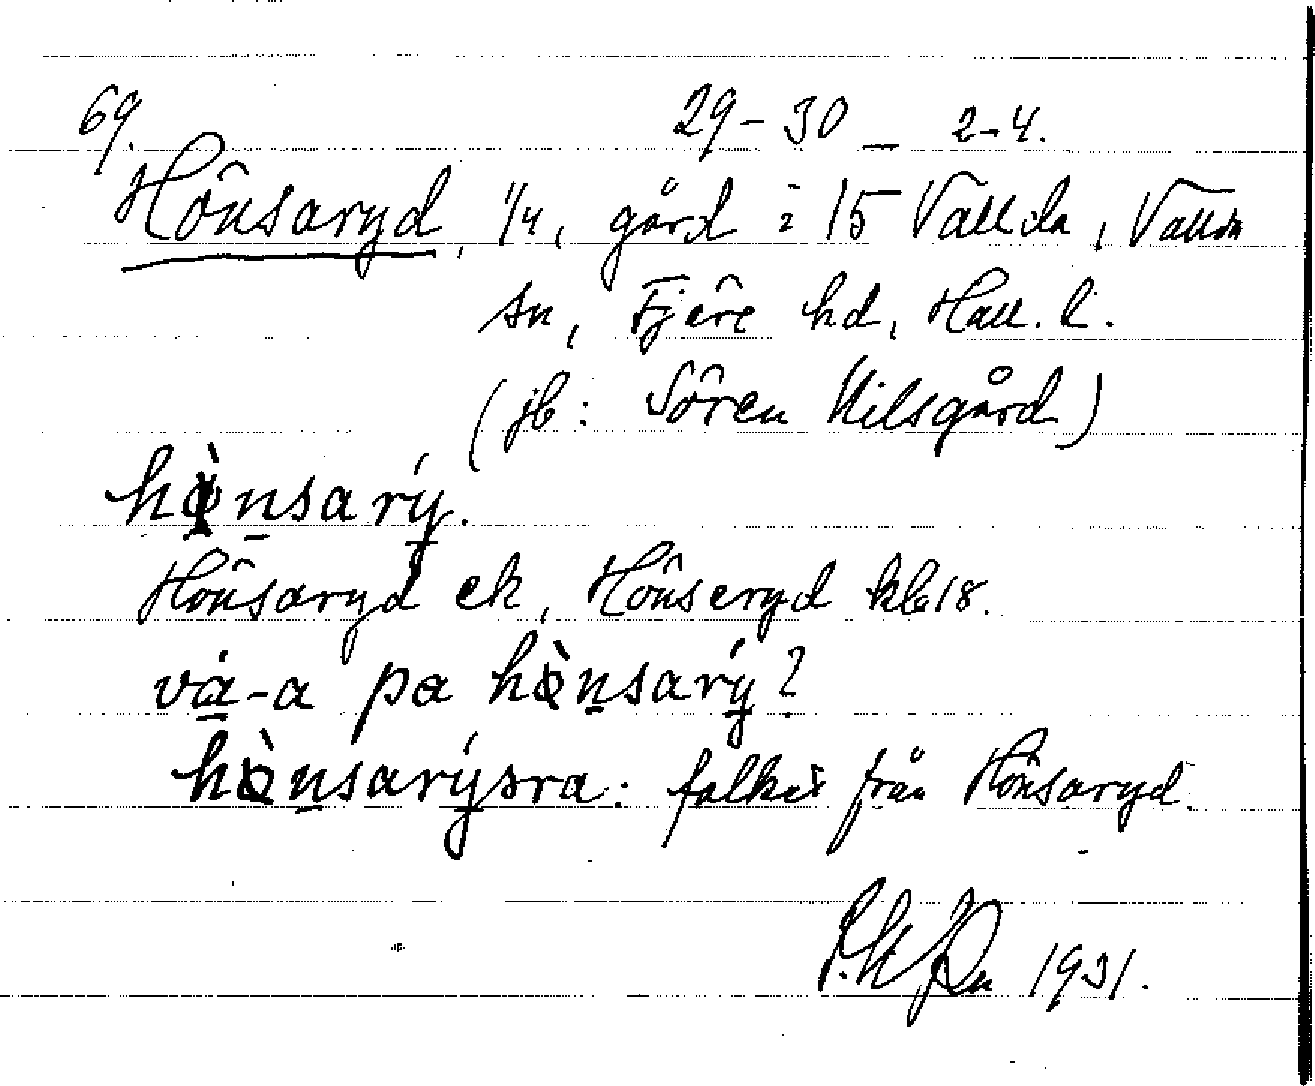 69. 29-30 — 2-4.
Hönsaryd, 1/4, gård i 15 Vallda, Vallda
sn, Fjäre hd, Hall. l.
(jb: Sören Nilsgård)
hø̀nsarý.
Hönsaryd ek, Hönseryd kb18.
vá-a pa hø̀nsarý?
hø̀nsarýsra: folket från Hönsaryd.
1931.